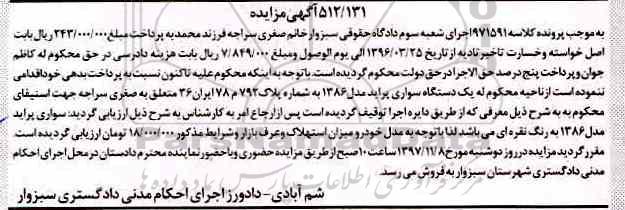 ۵۱۲/۱۳۱ آگهی مزایده
به موجب پرونده کلاسه ۹۷۱۵۹۱ اجرای شعبه سوم دادگاه حقوقی سبزوار خانم صغری سراجه فرزند محمد به پرداخت مبلغ ۲۴۳/۰۰۰/۰۰۰ ریال بابت
اصل خواسته و خسارت تاخیر تادیه از تاریخ ۱۳۹۶/۰۳/۲۵ الی یوم الوصول و مبلغ ۷/۸۴۹/۰۰۰ ریال بابت هزینه دادرسی در حق محکوم له کاظم
جوان و پرداخت پنج در صد حق الاجرا در حق دولت محکوم گردیده است. با توجه به اینکه محکوم علیه تاکنون نسبت به پرداخت بدهی خود اقدامی
ننموده است از ناحیه محکوم له یک دستگاه سواری پراید مدل ۱۳۸۶ به شماره پلاک ۷۹۲ م ۷۸ ایران ۳۶ متعلق به صغری سراجه جهت استیفای
محکوم به به شرح ذیل معرفی که از طریق دایره اجرا توقیف گردیده است پس از ارجاع امر به کارشناس به شرح ذیل ارزیابی گردید: سواری پراید
مدل ۱۳۸۶ به رنگ نقره ای می باشد لذا با توجه به مدل خودرو میزان استهلاک و عرف بازار و شرایط مذکور ۱۸/۰۰۰/۰۰۰ تومان ارزیابی گردیده است.
مقرر گردید مزایده در روز دوشنبه مورخ ۱۳۹۷/۱۱/۸ ساعت ۱۰ صبح از طریق مزایده حضوری و با حضور نماینده محترم دادستان در محل اجرای احکام
مدنی دادگستری شهرستان سبزوار به فروش می رسد.
شم آبادی - دادورز اجرای احکام مدنی دادگستری سبزوار